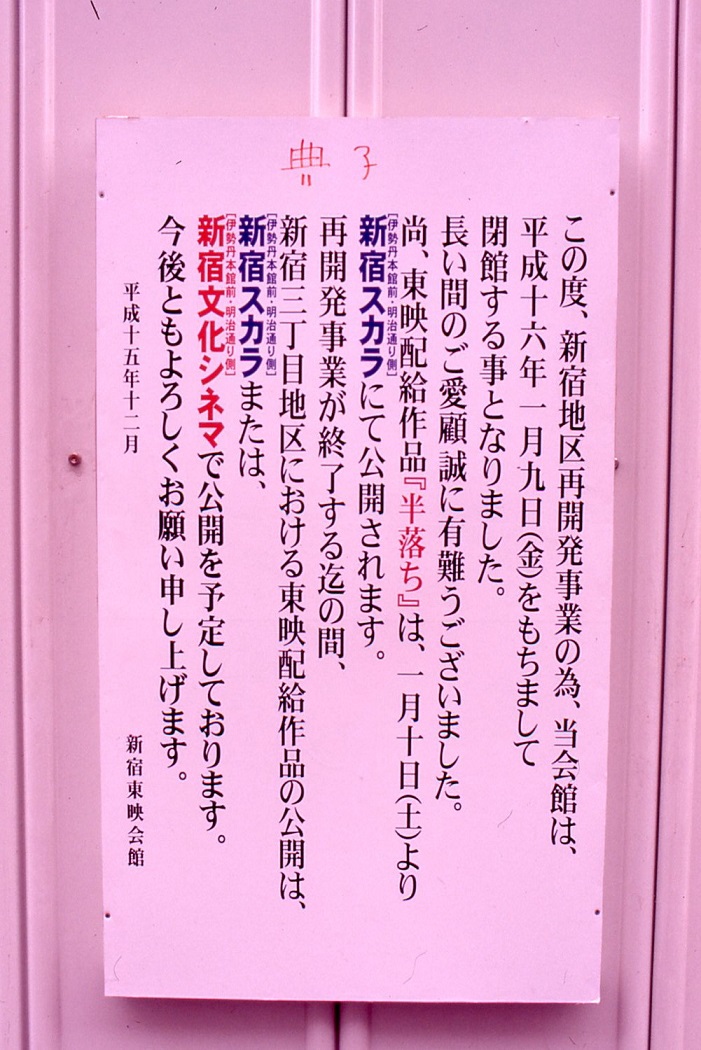 典子
この度、新宿地区再開発事業の為、当会館は、
平成十六年一月九日(金)をもちまして
閉館する事となりました。
長い間のご愛顧誠に有難うございました。
尚、東映配給作品『半落ち』は、一月十日(土)より
[伊勢丹本館前・明治通り側]
新宿スカラにて公開されます。
再開発事業が終了する迄の間、
新宿三丁目地区における東映配給作品の公開は、
[伊勢丹本館前・明治通り側]
新宿スカラまたは、
[伊勢丹本館前・明治通り側]
新宿文化シネマで公開を予定しております。
今後ともよろしくお願い申し上げます。
平成十五年十二月
新宿東映会館